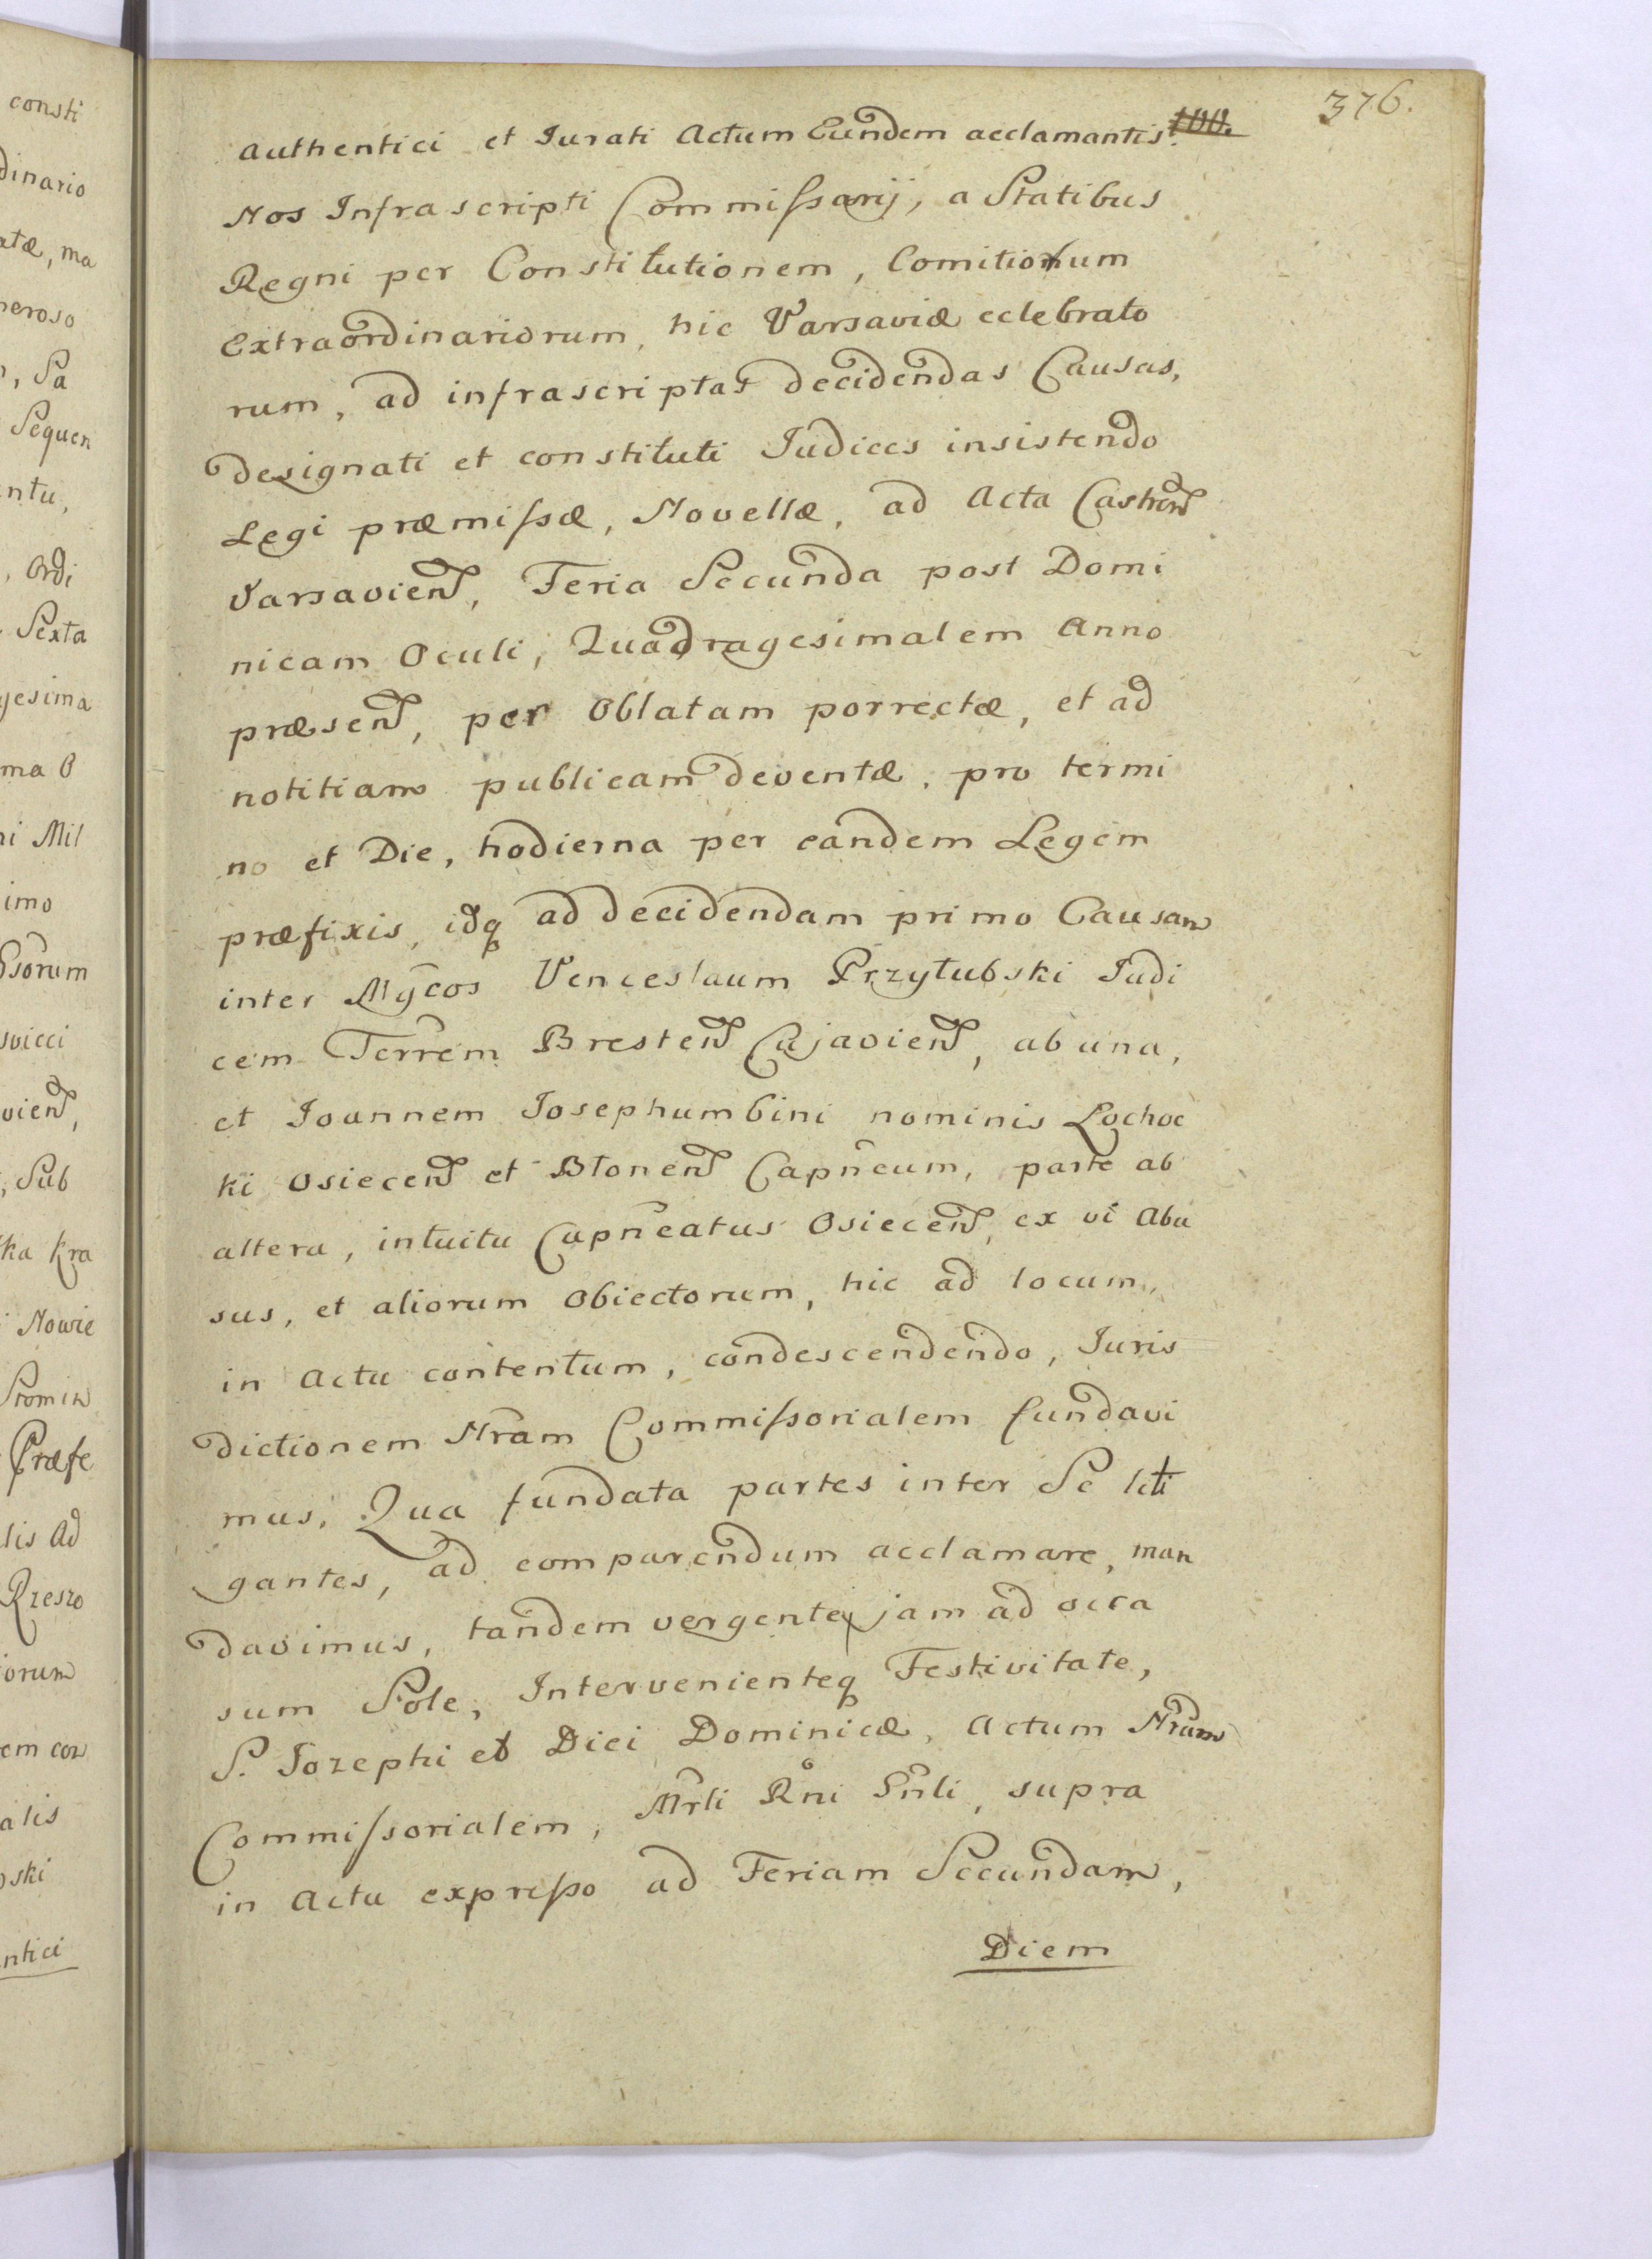 consti
dinario
atæ, ma
neroso
, Sa
Sequen
ntu,
, Ordi
Sexta
gesima
ma O
ni Mil
imo
sorum
svicci
vien,
, Sub
ka Kra
Nowie
Præfe
lis Ad
Rzeszo
iorum
em con
alis
ski
ntici
376.
authentici et Iurati Actum Eundem acclamantis. 100.
Nos Infrascripti Commißarij, a Statibus
Regni per Constitutionem, Comitiorum
Extraordinariorum, hic Varsaviæ celebrato
rum, ad infrascriptas decidendas Causas,
designati et constituti Iudices insistendo
Legi præmißæ, Novellæ, ad Acta Castren
Varsavien, Feria Secunda post Domi
nicam Oculi, Quadragesimalem Anno
præsen, per Oblatam porrectæ, et ad
notitiam publicam deventæ, pro termi
no et Die, hodierna per eandem Legem
præfixis, idq ad decidendam primo Causam
inter Mgcos Venceslaum Przyłubski Iudi
cem Terrem Bresten Cujavien, ab una,
et Ioannem Iosephum bini nominis Łochoc
ki Osiecen et Błonen Capneum, parte ab
altera, intuitu Capneatus Osiecen, ex vi Abu
sus, et aliorum Obiectorum, hic ad locum,
in Actu contentum, condescendendo, Iuris
dictionem Nram Commißorialem fundavi
mus, Qua fundata partes inter Se liti
gantes, ad comparendum acclamare, man
davimus, tandem vergente jam ad occa
sum Sole, Intervenienteq Festivitate,
S. Iozephi et Diei Dominicæ, Actum Nrum
Commißorialem, Mrli Rni Gnli, supra
in Actu expreßo ad Feriam Secundam,
Diem